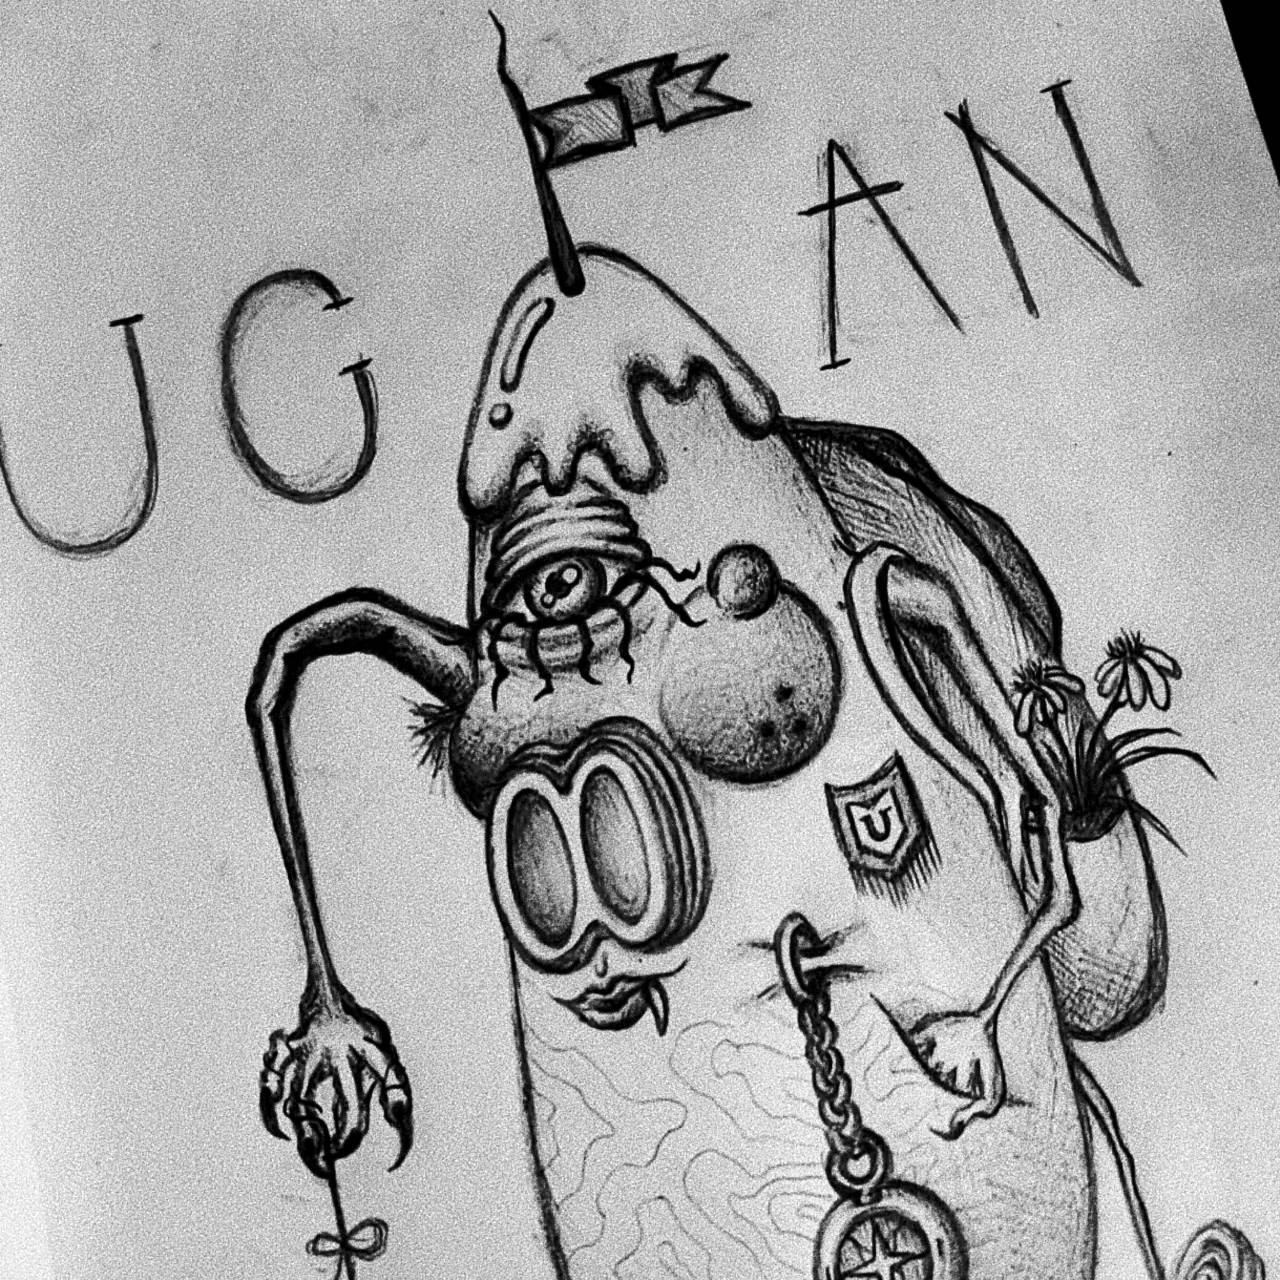 UG AN
U